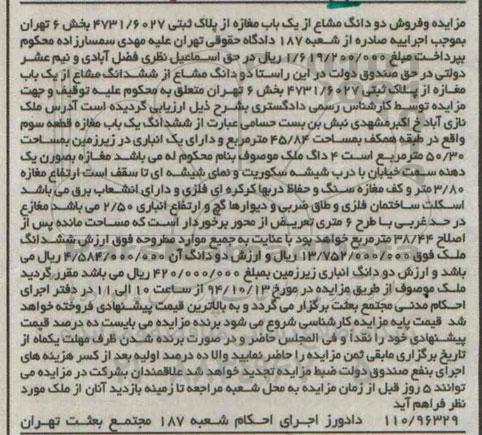 مزایده وفروش دو دانگ مشاع از یک باب مغازه از پلاک ثبتی ۴۷۳۱/۶۰۲۷ بخش ۶ تهران
بموجب اجراییه صادره از شعبه ۱۸۷ دادگاه حقوقی تهران علیه مهدی سمسارزاده محکوم
بپرداخت مبلغ ۱/۶۱۹/۲۰۰/۰۰۰ ریال در حق اسماعیل نظری فضل آبادی و نیم عشر
دولتی در حق صندوق دولت در این راستا دو دانگ مشاع از ششدانگ مشاع از یک باب
مغازه از پلاک ثبتی ۴۷۳۱/۶۰۲۷ بخش ۶ تهران متعلق به محکوم علیه توقیف و جهت
مزایده توسط کارشناس رسمی دادگستری بشرح ذیل ارزیابی گردیده است آدرس ملک
نازی آباد خ اکبرمشهدی نبش بن بست حسامی عبارت از ششدانگ یک باب مغازه قطعه سوم
واقع در طبقه همکف بمساحت ۴۵/۸۴ مترمربع و دارای یک انباری در زیرزمین بمساحت
۵۰/۳۰ مترمربع است ۴ داگ ملک موصوف بنام محکوم له می باشد مغازه بصورن یک
دهنه سمت خیابان با درب شیشه سکوریت و نمای شیشه ای تا سقف است ارتفاع مغازه
۳/۸۰ متر و کف مغازه سنگ و حفاظ دربها کرکره ای فلزی و دارای انشعاب برق می باشد
اسکلت ساختمان فلزی و طاق ضربی و دیوارها گچ و ارتفاع انباری ۲/۵۰ می باشد مغازع
در حد غربی با طرح ۶ متری تعریض از محور برخوردار است که مساحت مانده پس از
اصلاح ۳۸/۴۴ مترمربع خواهد بود با عنایت به جمیع موارد مطروحه فوق ارزش ششدانگ
ملک فوق ۱۳/۷۵۲/۰۰۰/۰۰۰ ریال و ارزش دو دانگ آن ۴/۵۸۴/۰۰۰/۰۰۰ ریال می
باشد و ارزش دو دانگ انباری زیرزمین بمبلغ ۴۲۰/۰۰۰/۰۰۰ ریال می باشد مقرر گردید
ملک موصوف از طریق مزایده در مورخ ۹۴/۱۰/۱۳ از ساعت ۱۰ الی ۱۱ در دفتر اجرای
احکام مدنی مجتمع بعثت برگزار می گردد و به بالاترین قیمت پیشنهادی فروخته خواهد
شد قیمت پایه مزایده کارشناسی شروع می شود برنده مزایده می بایست ده درصد قیمت
پیشنهادی خود را نقدا و فی المجلس حاضر و در صورت برنده شدن ظرف مهلت یکماه از
تاریخ برگزاری مابقی ثمن مزایده را حاضر نمایید والا ده درصد اولیه بعد از کسر هزینه های
اجرای بنفع صندوق دولت ضبط مزایده تجدید خواهد شد علاقمندان بشرکت در مزایده می
توانند ۵ روز قبل از زمان مزایده به محل شعبه مراجعه تا زمینه بازدید آنان از ملک مورد
نظر فراهم آید
۱۱۰/۹۶۳۲۹ دادورز اجرای احکام شعبه ۱۸۷ مجتمع بعثت تهران